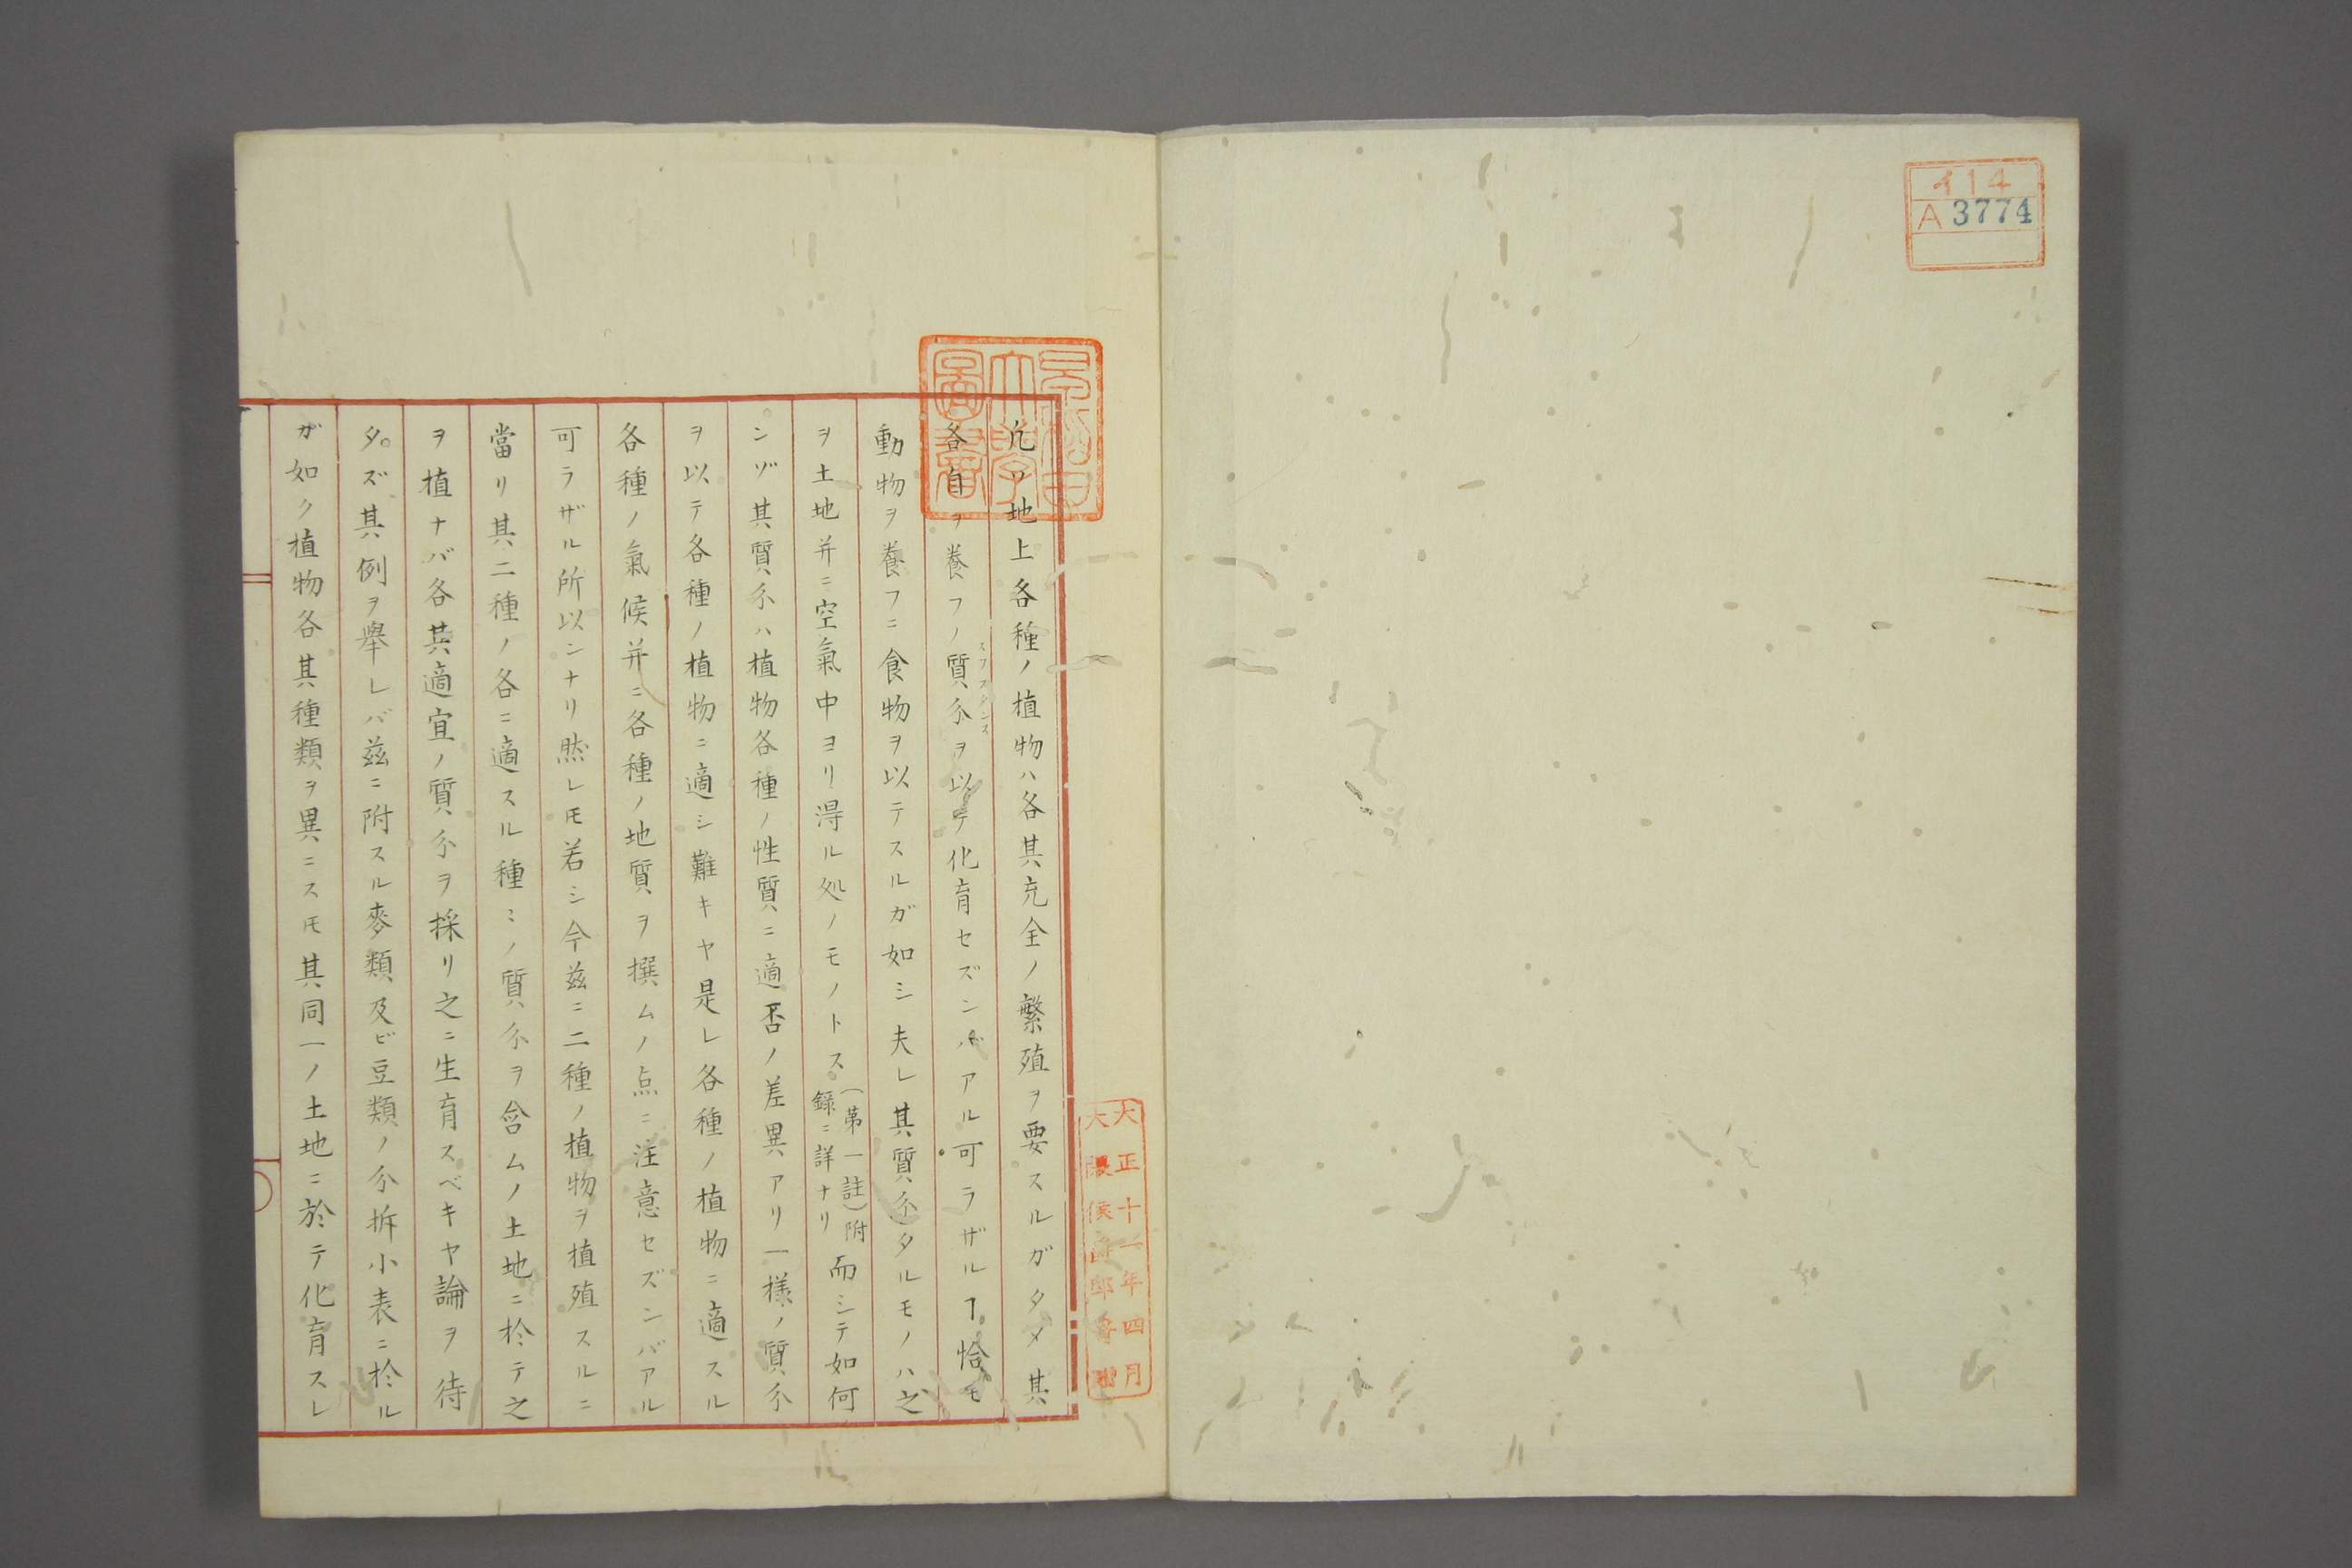 イ14
A 3774
早稲田大學圖書
大正十一年四月
大隈侯爵邸寄贈
凡ソ地上各種ノ植物ハ各其充全ノ繁殖ヲ要スルガタメ其
各自ヲ養フノ質分ヲ以テ化育セズンバアル可ラザルヿ恰モ
動物ヲ養フニ食物ヲ以テスルガ如シ夫レ其質分タルモノハ之
ヲ土地并ニ空氣中ヨリ淂ル処ノモノトス。(苐一註)附録ニ詳ナリ而シテ如何
ンゾ其質分ハ植物各種ノ性質ニ適否ノ差異アリ一様ノ質分
ヲ以テ各種ノ植物ニ適シ難キヤ是レ各種ノ植物ニ適スル
各種ノ氣候并ニ各種ノ地質ヲ撰ムノ点ニ注意セズンバアル
可ラザル所以ンナリ然レ𪜈若シ今茲ニ二種ノ植物ヲ植殖スルニ
當リ其二種ノ各ニ適スル種ミノ質分ヲ含ムノ土地ニ扵テ之
ヲ植ナバ各其適宜ノ質分ヲ採リ之ニ生育スベキヤ論ヲ待
タズ其例ヲ舉レバ茲ニ附スル麥類及ビ豆類ノ分拆小表ニ扵ル
ガ如ク植物各其種類ヲ異ニス𪜈其同一ノ土地ニ於テ化育スレ